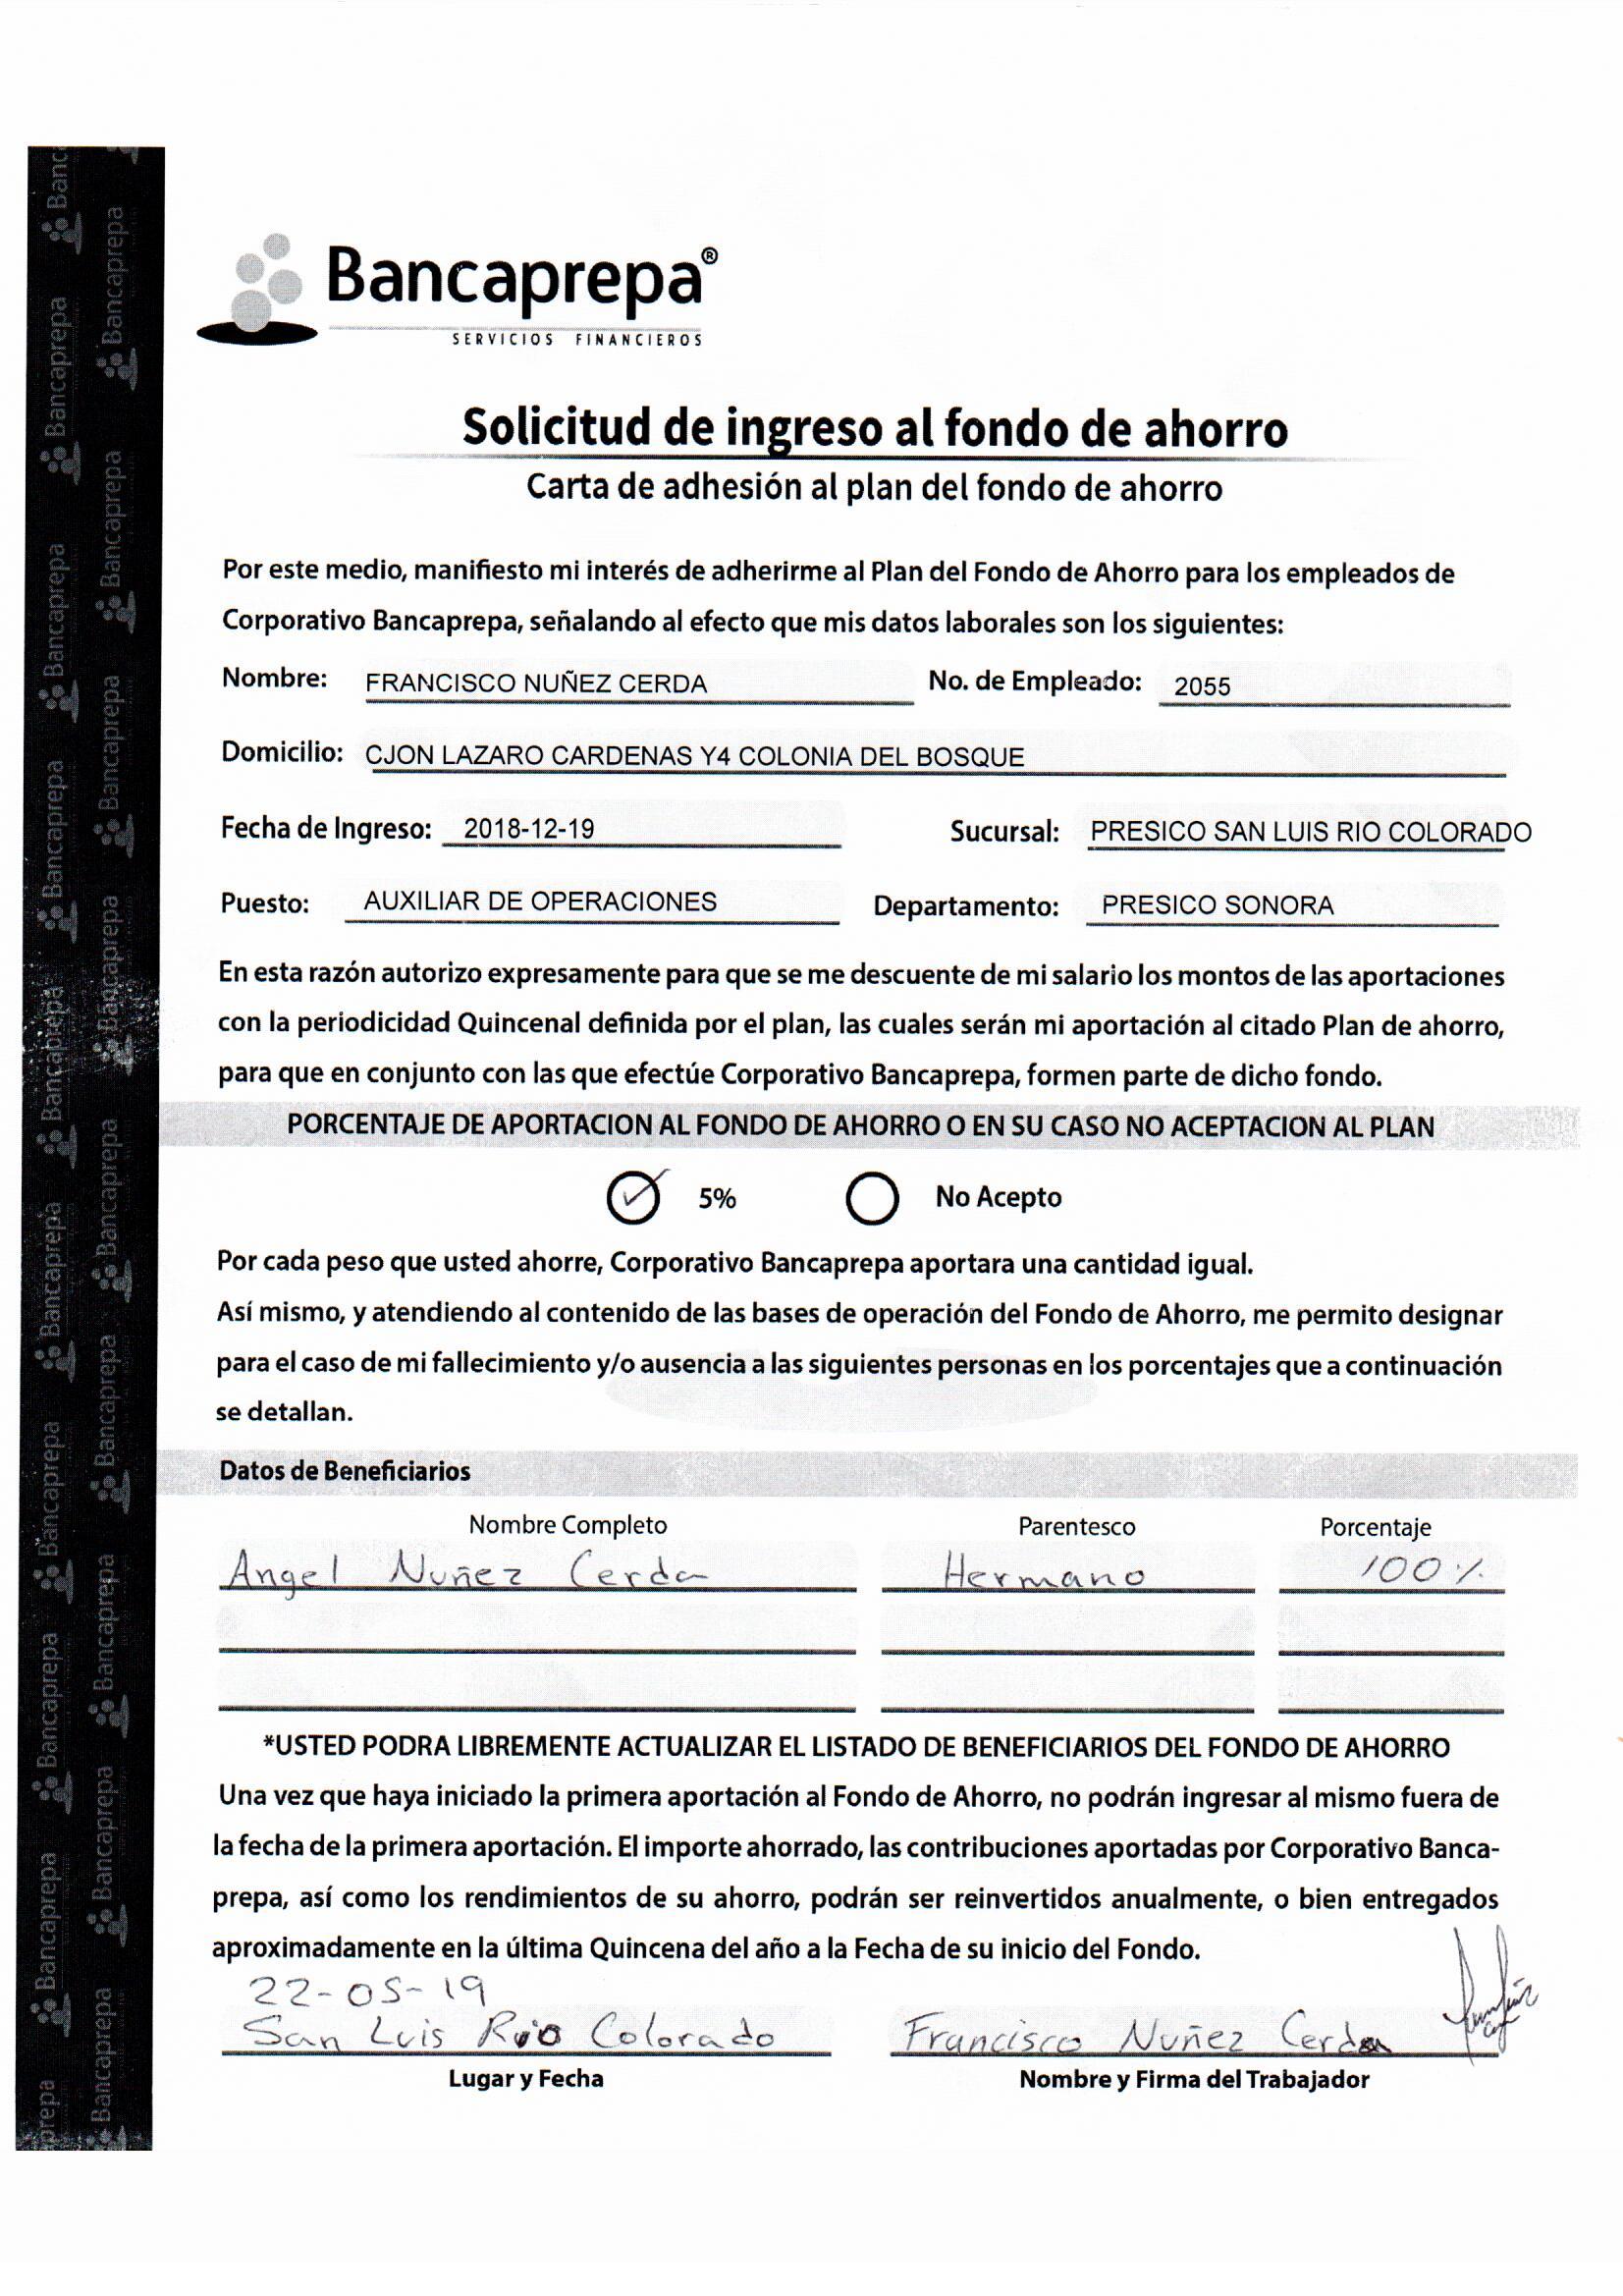 Bancaprepa®
SERVICIOS FINANCIEROS
Solicitud de ingreso al fondo de ahorro
Carta de adhesión al plan del fondo de ahorro
Por este medio, manifiesto mi interés de adherirme al Plan del Fondo de Ahorro para los empleados de
Corporativo Bancaprepa, señalando al efecto que mis datos laborales son los siguientes:
Nombre: FRANCISCO NUÑEZ CERDA No. de Empleado: 2055
Domicilio: CJON LAZARO CARDENAS Y4 COLONIA DEL BOSQUE
Fecha de Ingreso: 2018-12-19 Sucursal: PRESICO SAN LUIS RIO COLORADO
Puesto: AUXILIAR DE OPERACIONES Departamento: PRESICO SONORA
En esta razón autorizo expresamente para que se me descuente de mi salario los montos de las aportaciones
con la periodicidad Quincenal definida por el plan, las cuales serán mi aportación al citado Plan de ahorro,
para que en conjunto con las que efectúe Corporativo Bancaprepa, formen parte de dicho fondo.
PORCENTAJE DE APORTACION AL FONDO DE AHORRO O EN SU CASO NO ACEPTACION AL PLAN
5% No Acepto
Por cada peso que usted ahorre, Corporativo Bancaprepa aportara una cantidad igual.
Así mismo, y atendiendo al contenido de las bases de operación del Fondo de Ahorro, me permito designar
para el caso de mi fallecimiento y/o ausencia a las siguientes personas en los porcentajes que a continuación
se detallan.
Datos de Beneficiarios
Nombre Completo Parentesco Porcentaje
Angel Nuñez Cerda Hermano 100%
*USTED PODRA LIBREMENTE ACTUALIZAR EL LISTADO DE BENEFICIARIOS DEL FONDO DE AHORRO
Una vez que haya iniciado la primera aportación al Fondo de Ahorro, no podrán ingresar al mismo fuera de
la fecha de la primera aportación. El importe ahorrado, las contribuciones aportadas por Corporativo Banca-
prepa, así como los rendimientos de su ahorro, podrán ser reinvertidos anualmente, o bien entregados
aproximadamente en la última Quincena del año a la Fecha de su inicio del Fondo.
22-05-19
San Luis Rio Colorado Francisco Nuñez Cerda
Lugar y Fecha Nombre y Firma del Trabajador